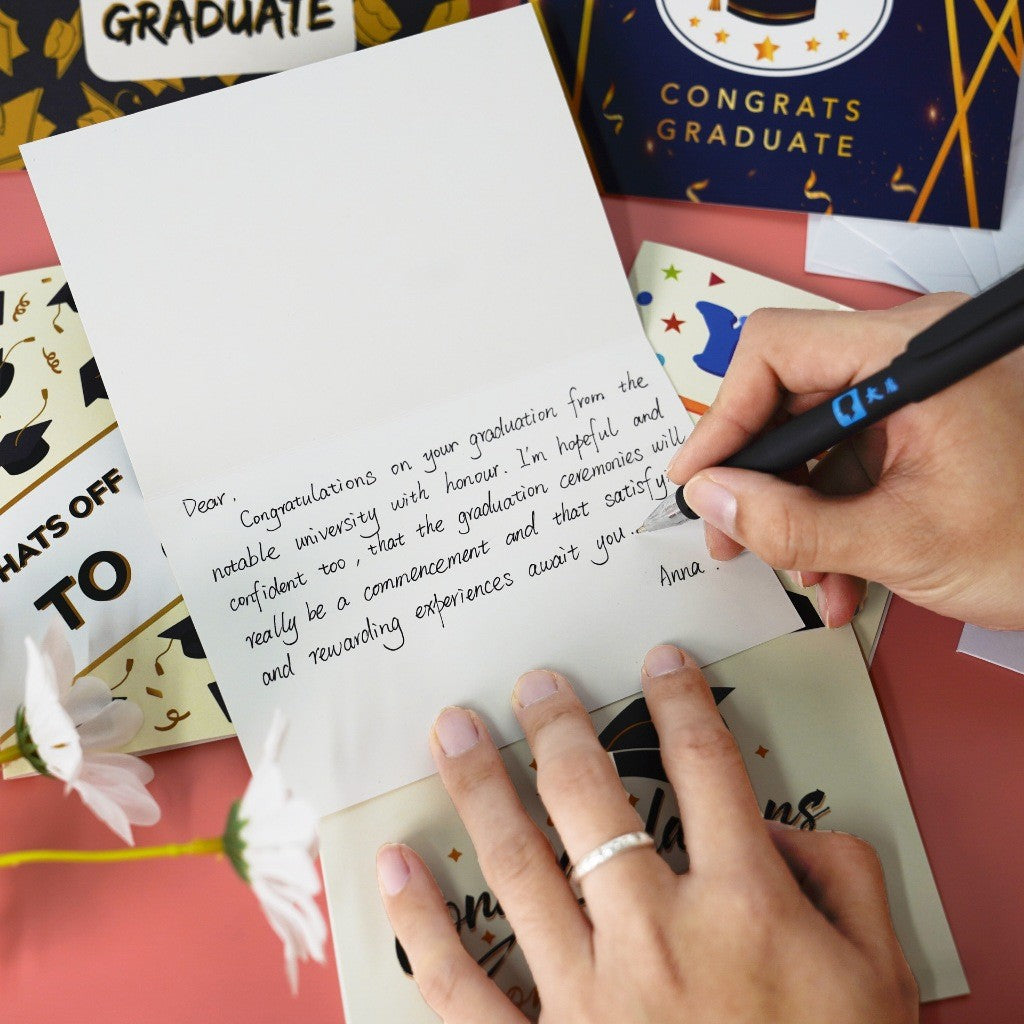 GRADUATE
CONGRATS
GRADUATE
HATS OFF
TO
Dear.
Congratulations on your graduation from the
notable university with honour. I'm hopeful and
confident too, that the graduation ceremonies will
really be a commencement and that satisfy
and rewarding experiences await you..
Anna.